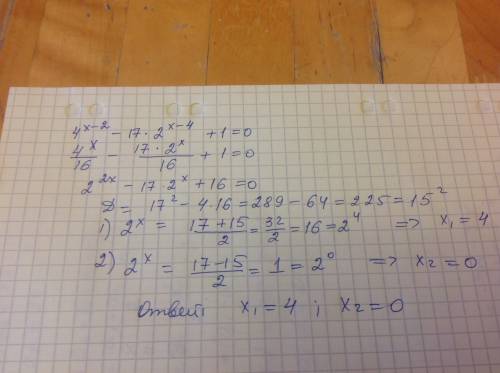 4^{x-2} - 17 · 2^{x-4} + 1 = 0
\frac{4^x}{16} - \frac{17 · 2^x}{16} + 1 = 0
2^{2x} - 17 · 2^x + 16 = 0
D = 17^2 - 4 · 16 = 289 - 64 = 225 = 15^2
1) 2^x = \frac{17 + 15}{2} = \frac{32}{2} = 16 = 2^4 => x_1 = 4
2) 2^x = \frac{17 - 15}{2} = 1 = 2^0 => x_2 = 0
Ответ: x_1 = 4 ; x_2 = 0